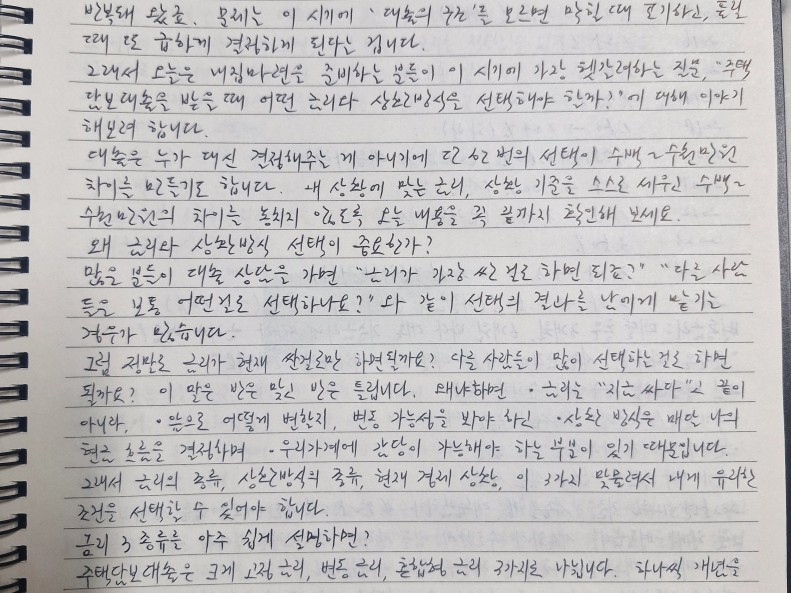 반복돼 왔죠. 문제는 이 시기에 '대출의 구조'를 모르면 막힐 때 포기하고, 풀릴
때 또 급하게 결정하게 된다는 겁니다.
그래서 오늘은 내집마련을 준비하는 분들이 이 시기에 가장 헷갈려하는 질문, "주택
담보대출을 받을 때 어떤 금리와 상환방식을 선택해야 할까?"에 대해 이야기
해보려 합니다.
대출은 누가 대신 결정해주는 게 아니기에 단 한 번의 선택이 수백~수천만원
차이를 만들기도 합니다. 내 상황에 맞는 금리, 상환 기준을 스스로 세우고 수백~
수천만원의 차이를 놓치지 않도록 오늘 내용을 꼭 끝까지 확인해 보세요.
왜 금리와 상환방식 선택이 중요한가?
많은 분들이 대출 상담을 가면 "금리가 가장 싼 걸로 하면 되죠?" "다른 사람
들은 보통 어떤걸로 선택하나요?"와 같이 선택의 결과를 남에게 맡기는
경우가 많습니다.
그럼 정말로 금리가 현재 싼걸로만 하면될까요? 다른 사람들이 많이 선택하는 걸로 하면
될까요? 이 말은 반은 맞고 반은 틀립니다. 왜냐하면 · 금리는 "지금 싸다"고 끝이
아니라, · 앞으로 어떻게 변할지, 변동 가능성을 봐야 하고 · 상환 방식은 매달 나의
현금 흐름을 결정하며 · 우리가계에 감당이 가능해야 하는 부분이 있기 때문입니다.
그래서 금리의 종류, 상환방식의 종류, 현재 경제 상황, 이 3가지 맞물려서 내게 유리한
조건을 선택할 수 있어야 합니다.
금리 3종류를 아주 쉽게 설명하면?
주택담보대출은 크게 고정 금리, 변동 금리, 혼합형 금리 3가지로 나뉩니다. 하나씩 개념을